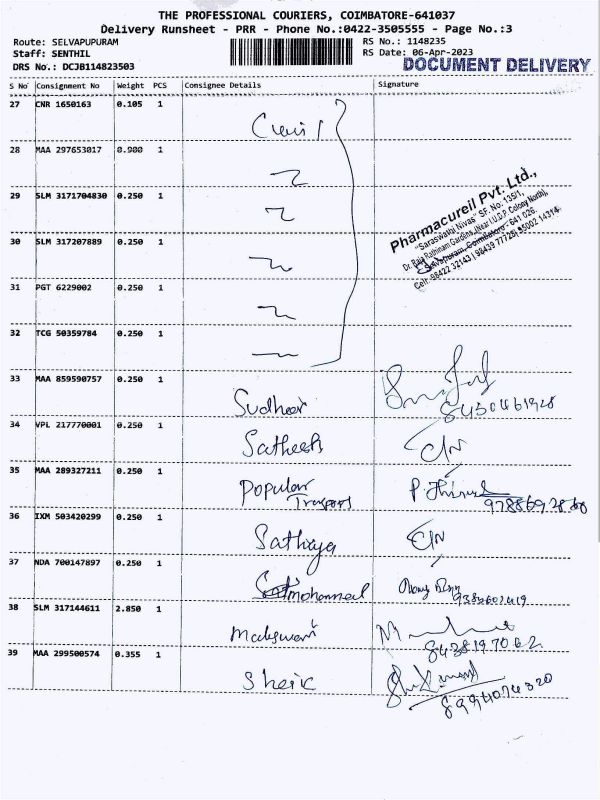 THE PROFESSIONAL COURIERS, COIMBATORE-641037
Delivery Runsheet - PRR - Phone No.:0422-3505555 - Page No.:3
Route: SELVAPUPURAM
Staff: SENTHIL
DRS No.: DCJB114823503
RS No.: 1148235
RS Date: 06-Apr-2023
DOCUMENT DELIVERY
S No Consignment No Weight PCS Consignee Details Signature
27 CNR 1650163 0.105 1
28 MAA 297653017 0.900 1
29 SLM 3171704830 0.250 1
Pharmacureil Pvt. Ltd.,
"Saraswathi Nivas" SF. No. 135/1,
Dr. Raja Rathinam Gardens, (Near I.U.D.P. Colony North),
Selvapuram, Coimbatore - 641 026.
Cell: 98422 32143 | 98439 77728 | 95002 14314
30 SLM 317207889 0.250 1
31 PGT 6229002 0.250 1
32 TCG 50359784 0.250 1
33 MAA 859590757 0.250 1 Sudheer
8430461928
34 VPL 217770001 0.250 1 Satheesh C/N
35 MAA 289327211 0.250 1 Popular
36 IXM 503420299 0.250 1 Sathya C/N
37 NDA 700147897 0.250 1 mohammed
38 SLM 317144611 2.850 1 Maheswari
8438197062
39 MAA 299500574 0.355 1 Sheik
8994074320